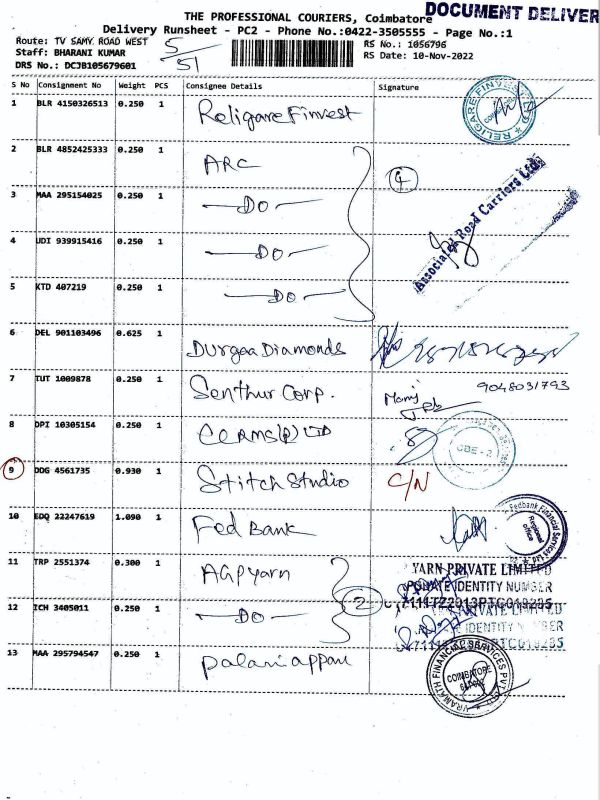 DOCUMENT DELIVER
THE PROFESSIONAL COURIERS, Coimbatore
Delivery Runsheet - PC2 - Phone No.:0422-3505555 - Page No.:1
Route: TV SAMY ROAD WEST 5/51 RS No.: 1056796
Staff: BHARANI KUMAR RS Date: 10-Nov-2022
DRS No.: DCJB105679601
S No Consignment No Weight PCS Consignee Details Signature
1 BLR 4150326513 0.250 1 Religare Finvest
2 BLR 4852425333 0.250 1 ARC 4
Associated Road Carriers Ltd.
3 MAA 295154025 0.250 1 —DO—
4 UDI 939915416 0.250 1 —DO—
5 KTD 407219 0.250 1 —DO—
6 DEL 901103496 0.625 1 Durgaa Diamonds
7 TUT 1009878 0.250 1 Senthur Corp. 9048031793
8 DPI 10305154 0.250 1 CCAMS(P) LTD
CBE - 2
9 DDG 4561735 0.930 1 Stitch Studio C/N
10 EDQ 22247619 1.090 1 Fed Bank
Fedbank Financial Services Ltd
Regional office
11 TRP 2551374 0.300 1 AGP yarn
YARN PRIVATE LIMITED
IDENTITY NUMBER
12 ICH 3405011 0.250 1 —DO— 2
PRIVATE LIMITED
IDENTITY
13 MAA 295794547 0.250 1 Palaniappan
FINANCIAL SERVICES PVT
COIMBATORE